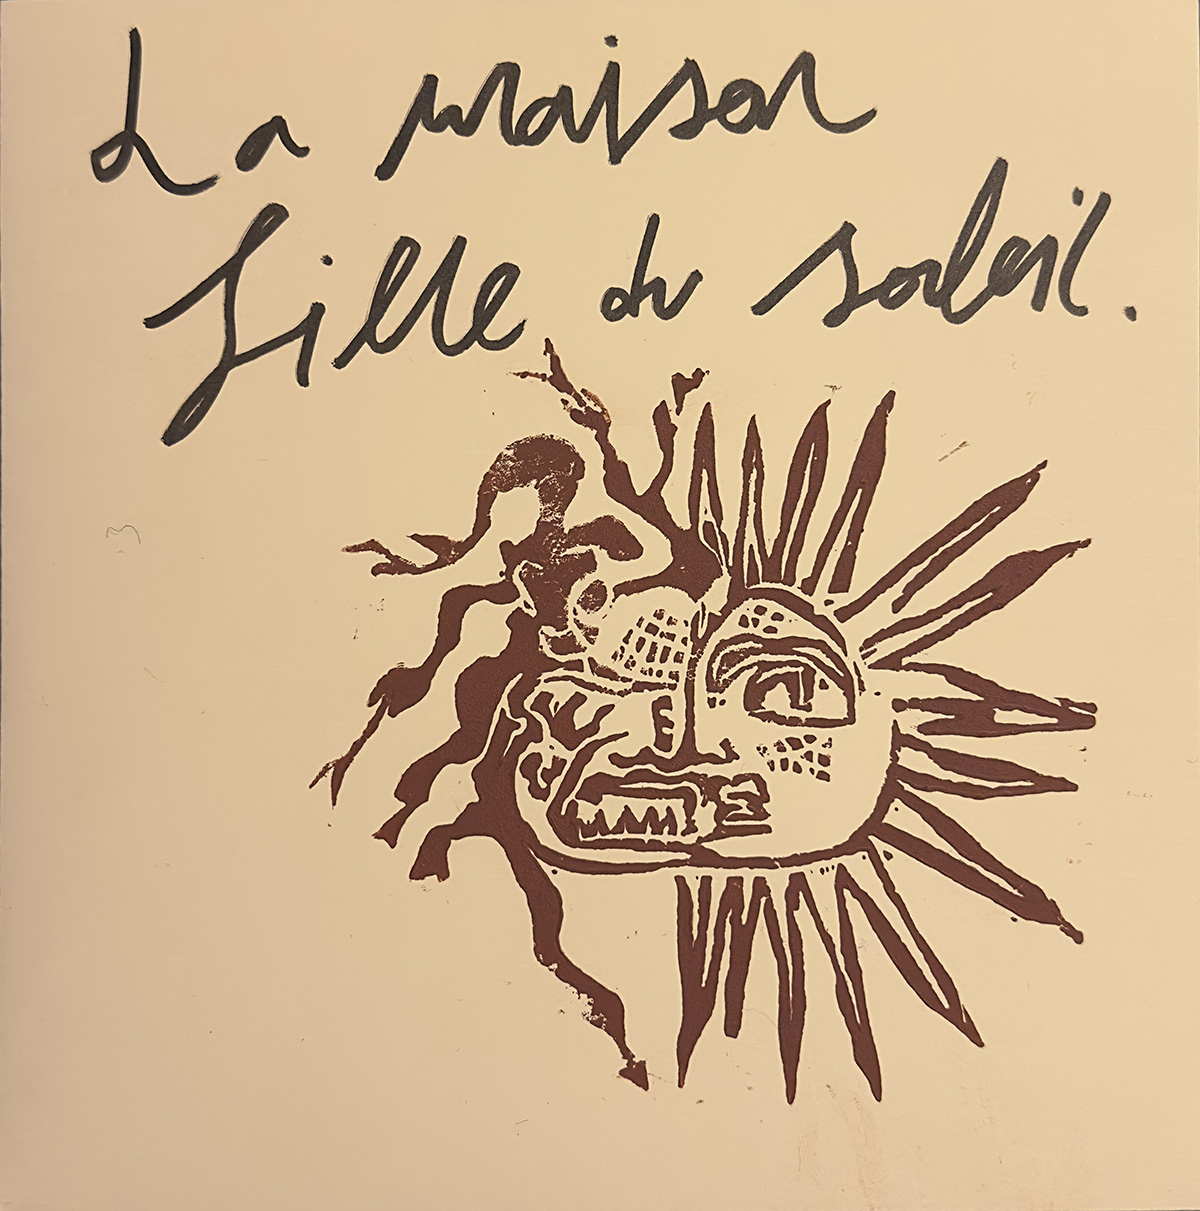 La maison
fille du soleil.